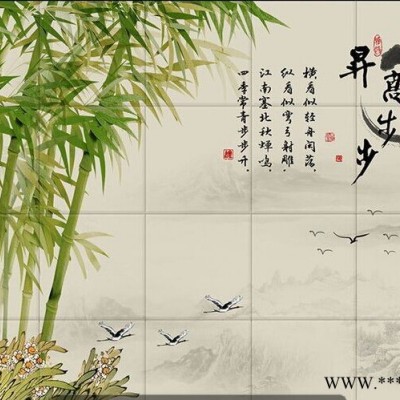 高步步
昇
横看似轻舟闲荡，
纵看似弯弓射雕，
江南塞北秋蝉鸣，
四季常青步步升，
www.***